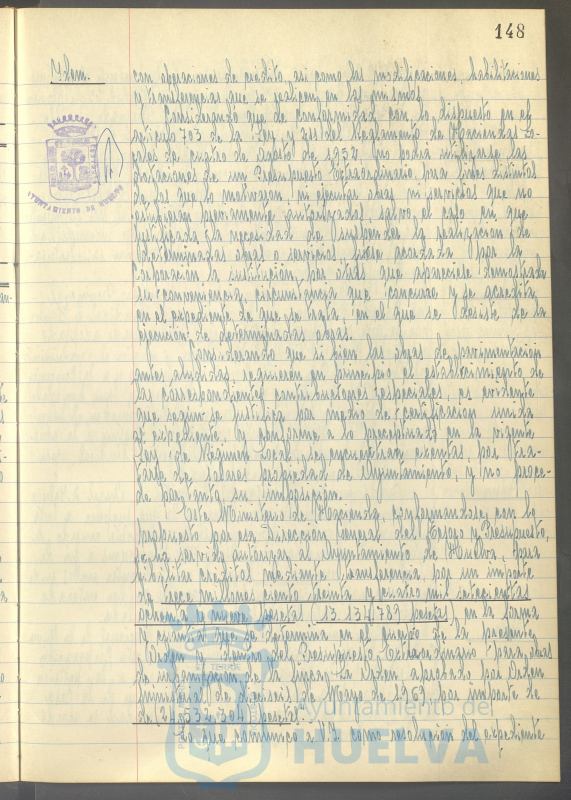 148
Idem.
con operaciones de crédito, así como las modificaciones, habilitaciones
y transferencias que se realicen en las mismos.
Considerando que de conformidad con lo dispuesto en el
artículo 703 de la Ley, y 211 del Reglamento de Haciendas Lo-
cales de cuatro de Agosto de 1952, no podrá invertirse las
dotaciones de un Presupuesto Extraordinario para fines distintos
de los que lo motivaron, ni ejecutar obras ni servicios que no
estuviesen previamente autorizados, salvo el caso en que
justificada la necesidad de suspender la realización de
determinadas obras o servicios, fuese acordada por la
Corporación la sustitución por otras que apareciese demostrada
su conveniencia, circunstancia que concurre y se acredita
en el expediente de que se trata, en el que se desiste de la
ejecución de determinadas obras.
Considerando que si bien las obras de pavimentación
antes aludidas requieren en principio el establecimiento de
las correspondientes contribuciones especiales, es evidente
que según se justifica por medio de certificación unida
al expediente, y conforme a lo preceptuado en la vigente
Ley de Régimen Local, se encuentran exentas, por tra-
tarse de solares propiedad del Ayuntamiento, y no proce-
de por tanto su imposición.
Este Ministerio de Hacienda, conformandose con lo
propuesto por esa Dirección General del Tesoro y Presupuesto,
servido autorizar al Ayuntamiento de Huelva, para
habilitar créditos mediante transferencia por un importe
de trece millones ciento treinta y cuatro mil setecientas
ochenta y nueve pesetas (13.134.789 pesetas) en la forma
y cuantía que se determina en el cuerpo de la presente
Orden y dentro del Presupuesto Extraordinario para obras
de urbanización de la Orden, aprobado por Orden
ministerial de dieciseis de Mayo de 1969, por importe de
de pesetas.
Lo que comunico a V.I. como resolución del expediente
AYUNTAMIENTO DE HUELVA
Ayuntamiento de
HUELVA